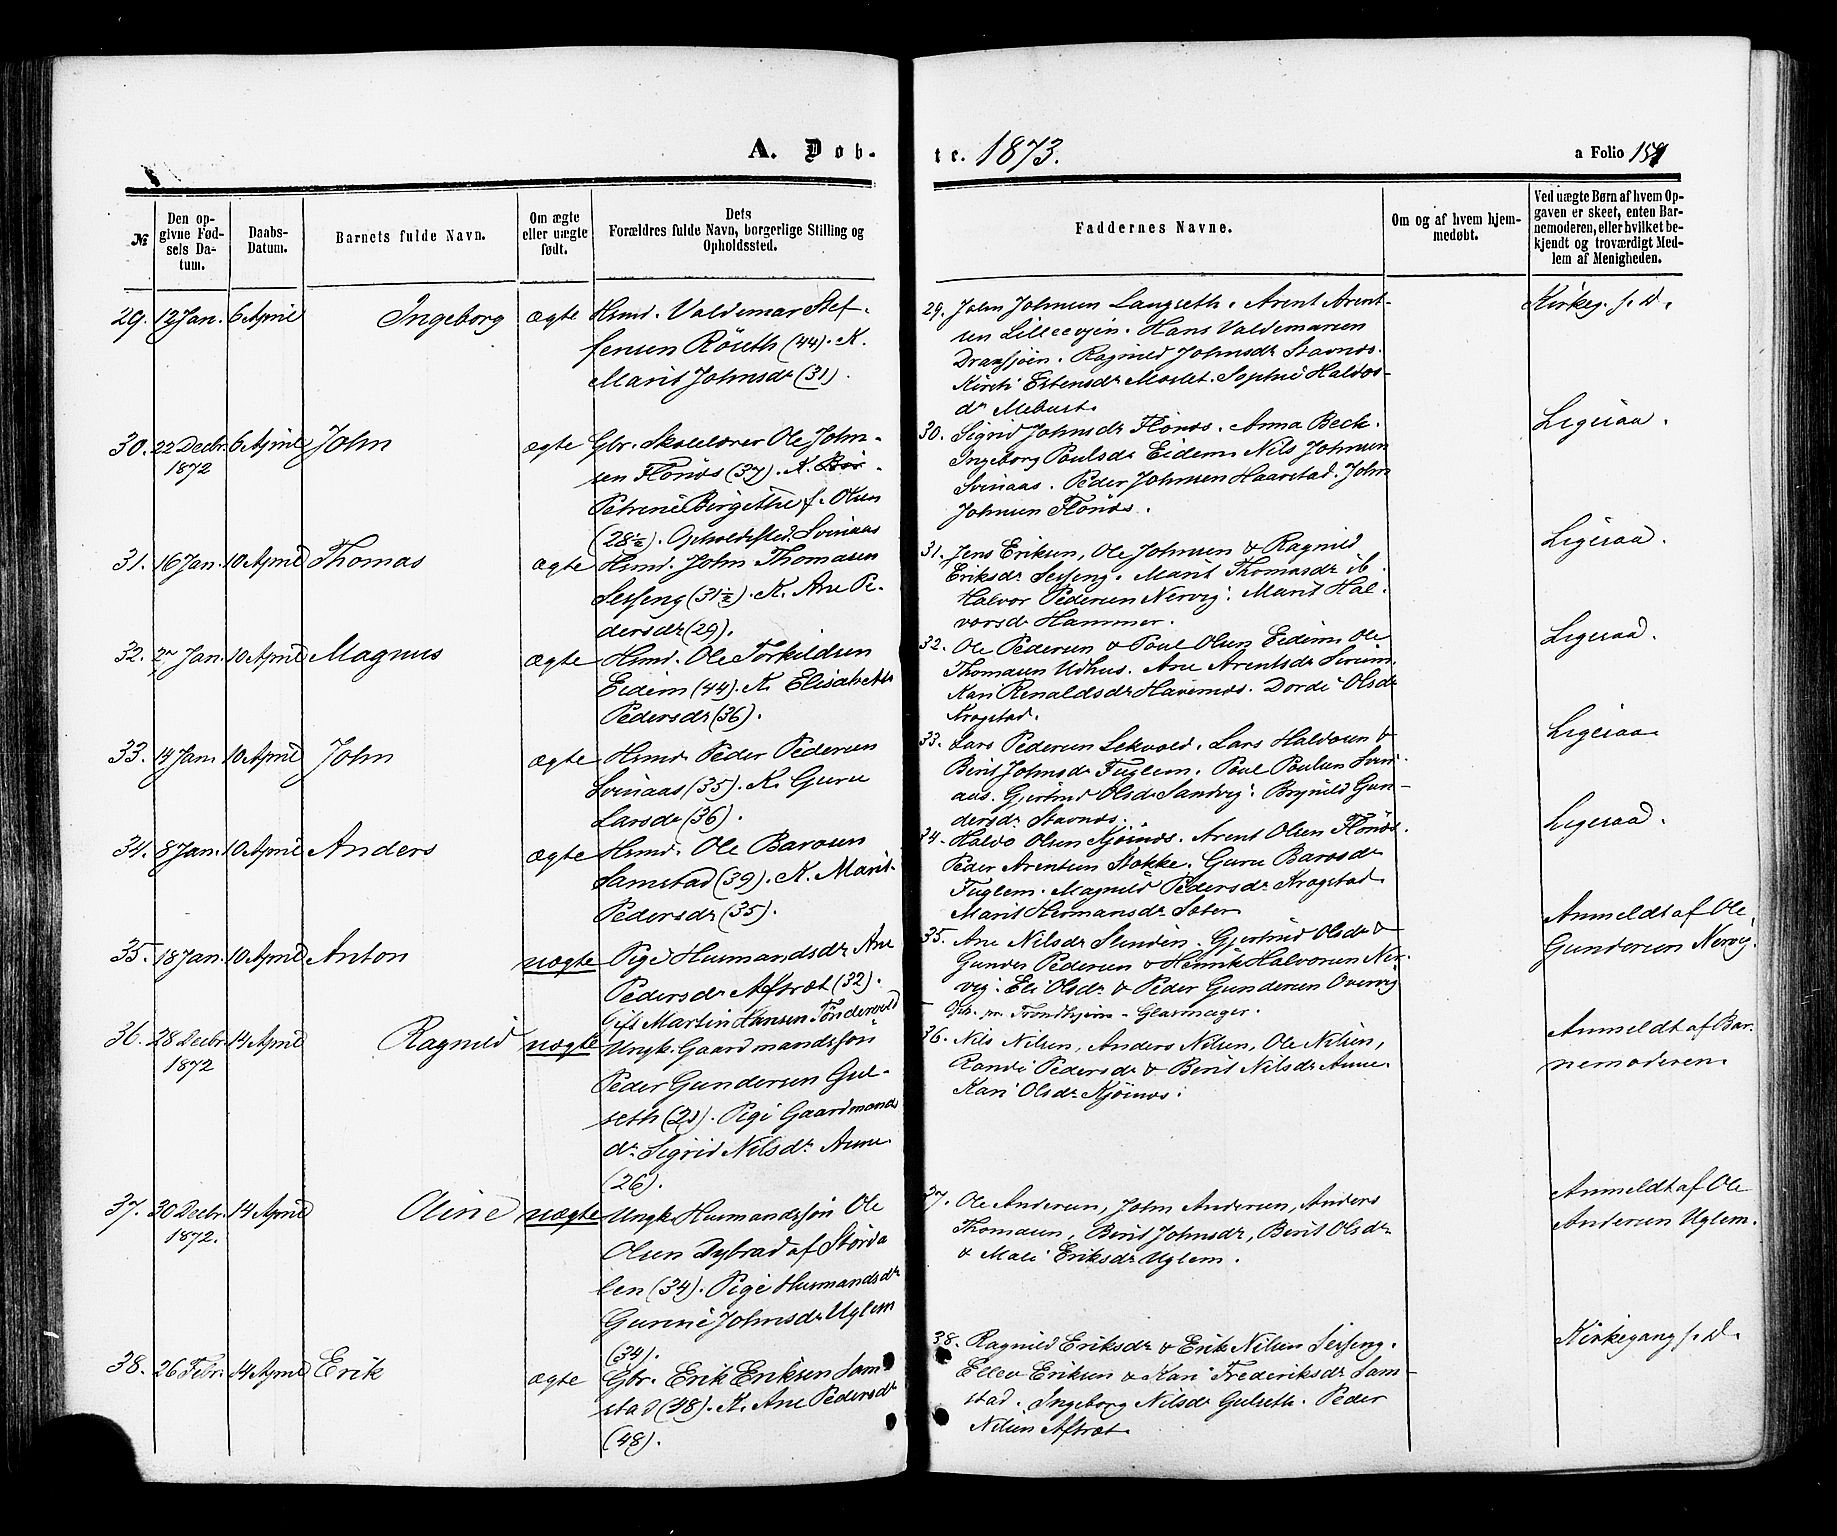 A. Døb-
te. 1873.
a Folio 159
№
Den op-
givne Fød-
sels Da-
tum.
Daabs-
Datum.
Barnets fulde Navn.
Om ægte
eller uægte
født.
Dets
Forældres fulde Navn, borgerlige Stilling og
Opholdssted.
Faddernes Navne.
Om og af hvem hjem-
medøbt.
Ved uægte Børn af hvem Op-
gaven er skeet, enten Bar-
nemoderen, eller hvilket be-
kjendt og troværdigt Med-
lem af Menigheden.
29. 12 Jan. 6 April Ingeborg ægte Hsmd. Valdemar Stef-
fensen Röseth (44). K.
Marit Johnsdr (31).
29. John Johnsen Langseth. Arent Arent-
sen Lilleevjen. Hans Valdemarsen
Draxsjøen. Ragnild Johnsdr Stavnos.
Kirsti Estensdr Moslet. Sophie Haldos-
dr Mebust.
Kirkeg. s. D.
30. 22 Decbr. 6 April John ægte Gbr. Skolelærer Ole John-
1872
sen Flönös (37). K. Ber-
Petrine Bergethe f. Olsen
(28½). Opholdssted Svinaas
30. Sigrid Johnsdr Flönös. Anna Beck.
Ingeborg Poulsdr Eidem. Nils Johnsen
Svinaas. Peder Johnsen Haarstad. John
Johnsen Flönös.
Ligesaa.
31. 16 Jan. 10 April Thomas ægte Hsmd. John Thomasen
Sesseng (31½). K. Ane Pe-
dersdr (29).
31. Jens Eriksen, Ole Johnsen & Ragnild
Eriksdr Sesseng. Marit Thomasdr ib.
Halvor Pedersen Nervig. Marit Hal-
vorsdr Hammer.
Ligesaa.
32. 27 Jan. 10 April Magnus ægte Hsmd. Ole Torkildsen
Eidem (44). K. Elisabeth
Pedersdr (36).
32. Ole Pedersen & Poul Olsen Eidem. Ole
Thomasen Udhus. Ane Arentsdr
Kari Renaldsdr Havernos. Dordi Olsdr
Krogstad.
Ligesaa.
33. 14 Jan. 10 April John ægte Hsmd. Peder Pedersen
Svinaas (35). K. Guru
Larsdr (36).
33. Lars Pedersen Sekvold. Lars Haldosen &
Berit Johnsdr Fuglem. Poul Poulsen Svin-
aas. Gjertrud Olsdr Sandvig. Brynild Gun-
dersdr Stavnos.
Ligesaa.
34. 8 Jan. 10 April Anders ægte Hsmd. Ole Barosen
Samstad (39). K. Marit
Pedersdr (35).
34. Haldo Olsen Kjøsnos. Arent Olsen Flönös.
Peder Arentsen Stokke. Guru Barosdr
Fuglem. Magnild Pedersdr Krogstad.
Marit Hermansdr Sæter.
Ligesaa.
35. 18 Jan. 10 April Anton uægte Pige Husmandsdr Ane
Pedersdr Aftræt (32).
Gift Martin Hansen Tøndervold
35. Ane Nilsdr Stenden. Gjertrud Olsdr &
Gunder Pedersen & Henrik Halvorsen Ner-
vig. Eli Olsdr & Peder Gundersen Overvig
Trondhjem - Glasmager.
Anmeldt af Ole
Gundersen Nervig.
36. 28 Decbr. 14 April Ragnild uægte Ungk. Gaardmandssøn
1872
Peder Gundersen Gul-
seth (21). Pige Gaardmands
dr. Sigrid Nilsdr. Aune
(26).
36. Nils Nilsen, Anders Nilsen, Ole Nilsen,
Randi Pedersdr & Berit Nilsdr Aune.
Kari Olsdr Kjøsnos.
Anmeldt af Bar-
nemoderen.
37. 30 Decbr. 14 April Oline uægte Ungk. Husmandssøn Ole
1872.
Olsen Dybvad af Størda
len (34). Pige Husmandsdr
Gurine Johnsdr Uglem
(34).
37. Ole Andersen, John Andersen, Anders
Thomasen, Berit Johnsdr, Berit Olsdr
& Mali Eriksdr Uglem.
Anmeldt af Ole
Andersen Uglem.
38. 26 Febr. 14 April Erik ægte Gbr. Erik Eriksen Sam-
stad (48). K. Ane Pedersdr
(48).
38. Ragnild Eriksdr & Erik Nilsen Sesseng.
Ellev Eriksen & Kari Frederiksdr Sam-
stad. Ingeborg Nilsdr Gulseth. Peder
Nilsen Aftræt.
Kirkegang s. D.